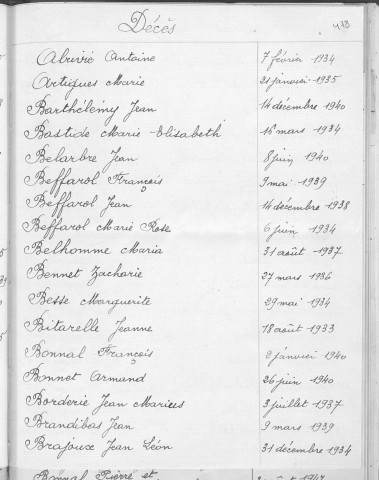 Décès
Abrivié Antoine 7 février 1934
Artigues Marie 21 janvier 1935
Barthélémy Jean 14 décembre 1940
Bastide Marie Elisabeth 16 mars 1934
Belarbre Jean 8 juin 1940
Beffarol François 9 mai 1939
Beffarol Jean 14 décembre 1938
Beffarol Marie Rose 6 juin 1934
Belhomme Maria 31 août 1937
Bennet Zacharie 27 mars 1936
Besse Marguerite 29 mai 1934
Bitarelle Jeanne 18 août 1933
Bonnal François 2 janvier 1940
Bonnet Armand 26 juin 1940
Borderie Jean Marius 3 juillet 1937
Brandibas Jean 9 mars 1939
Brajoux Jean Léon 31 décembre 1934
Bonnal Pierre et